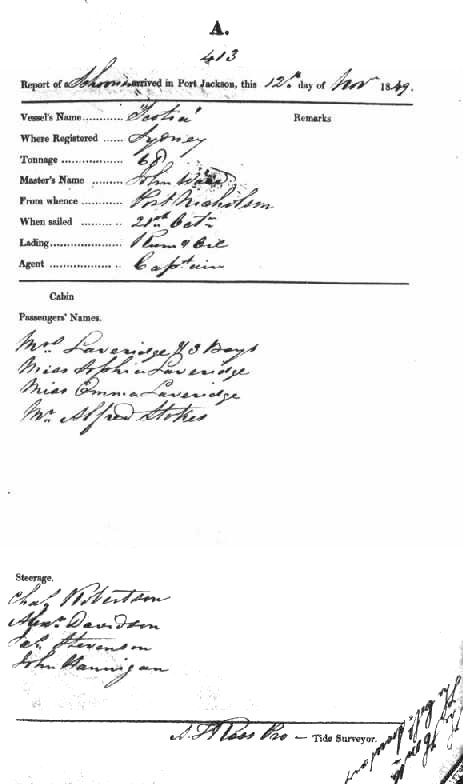 A.
413
Report of a Schooner arrived in Port Jackson, this 12th day of Nov 1849.
Vessel's Name........... Scotia Remarks
Where Registered ...... Sydney
Tonnage ................. 68
Master's Name ......... John Ward
From whence .......... Port Nicholson
When sailed .......... 21st Octr
Lading.................... & Oil
Agent .................... Captain
Cabin
Passengers' Names.
Mrs Laveridge & 3 Boys
Miss Sophia Laveridge
Miss Emma Laveridge
Mr Alfred Stokes
Steerage.
Chas Robertson
Alexr Davidson
Jas Stevenson
John Hannigan
Pro — Tide Surveyor.